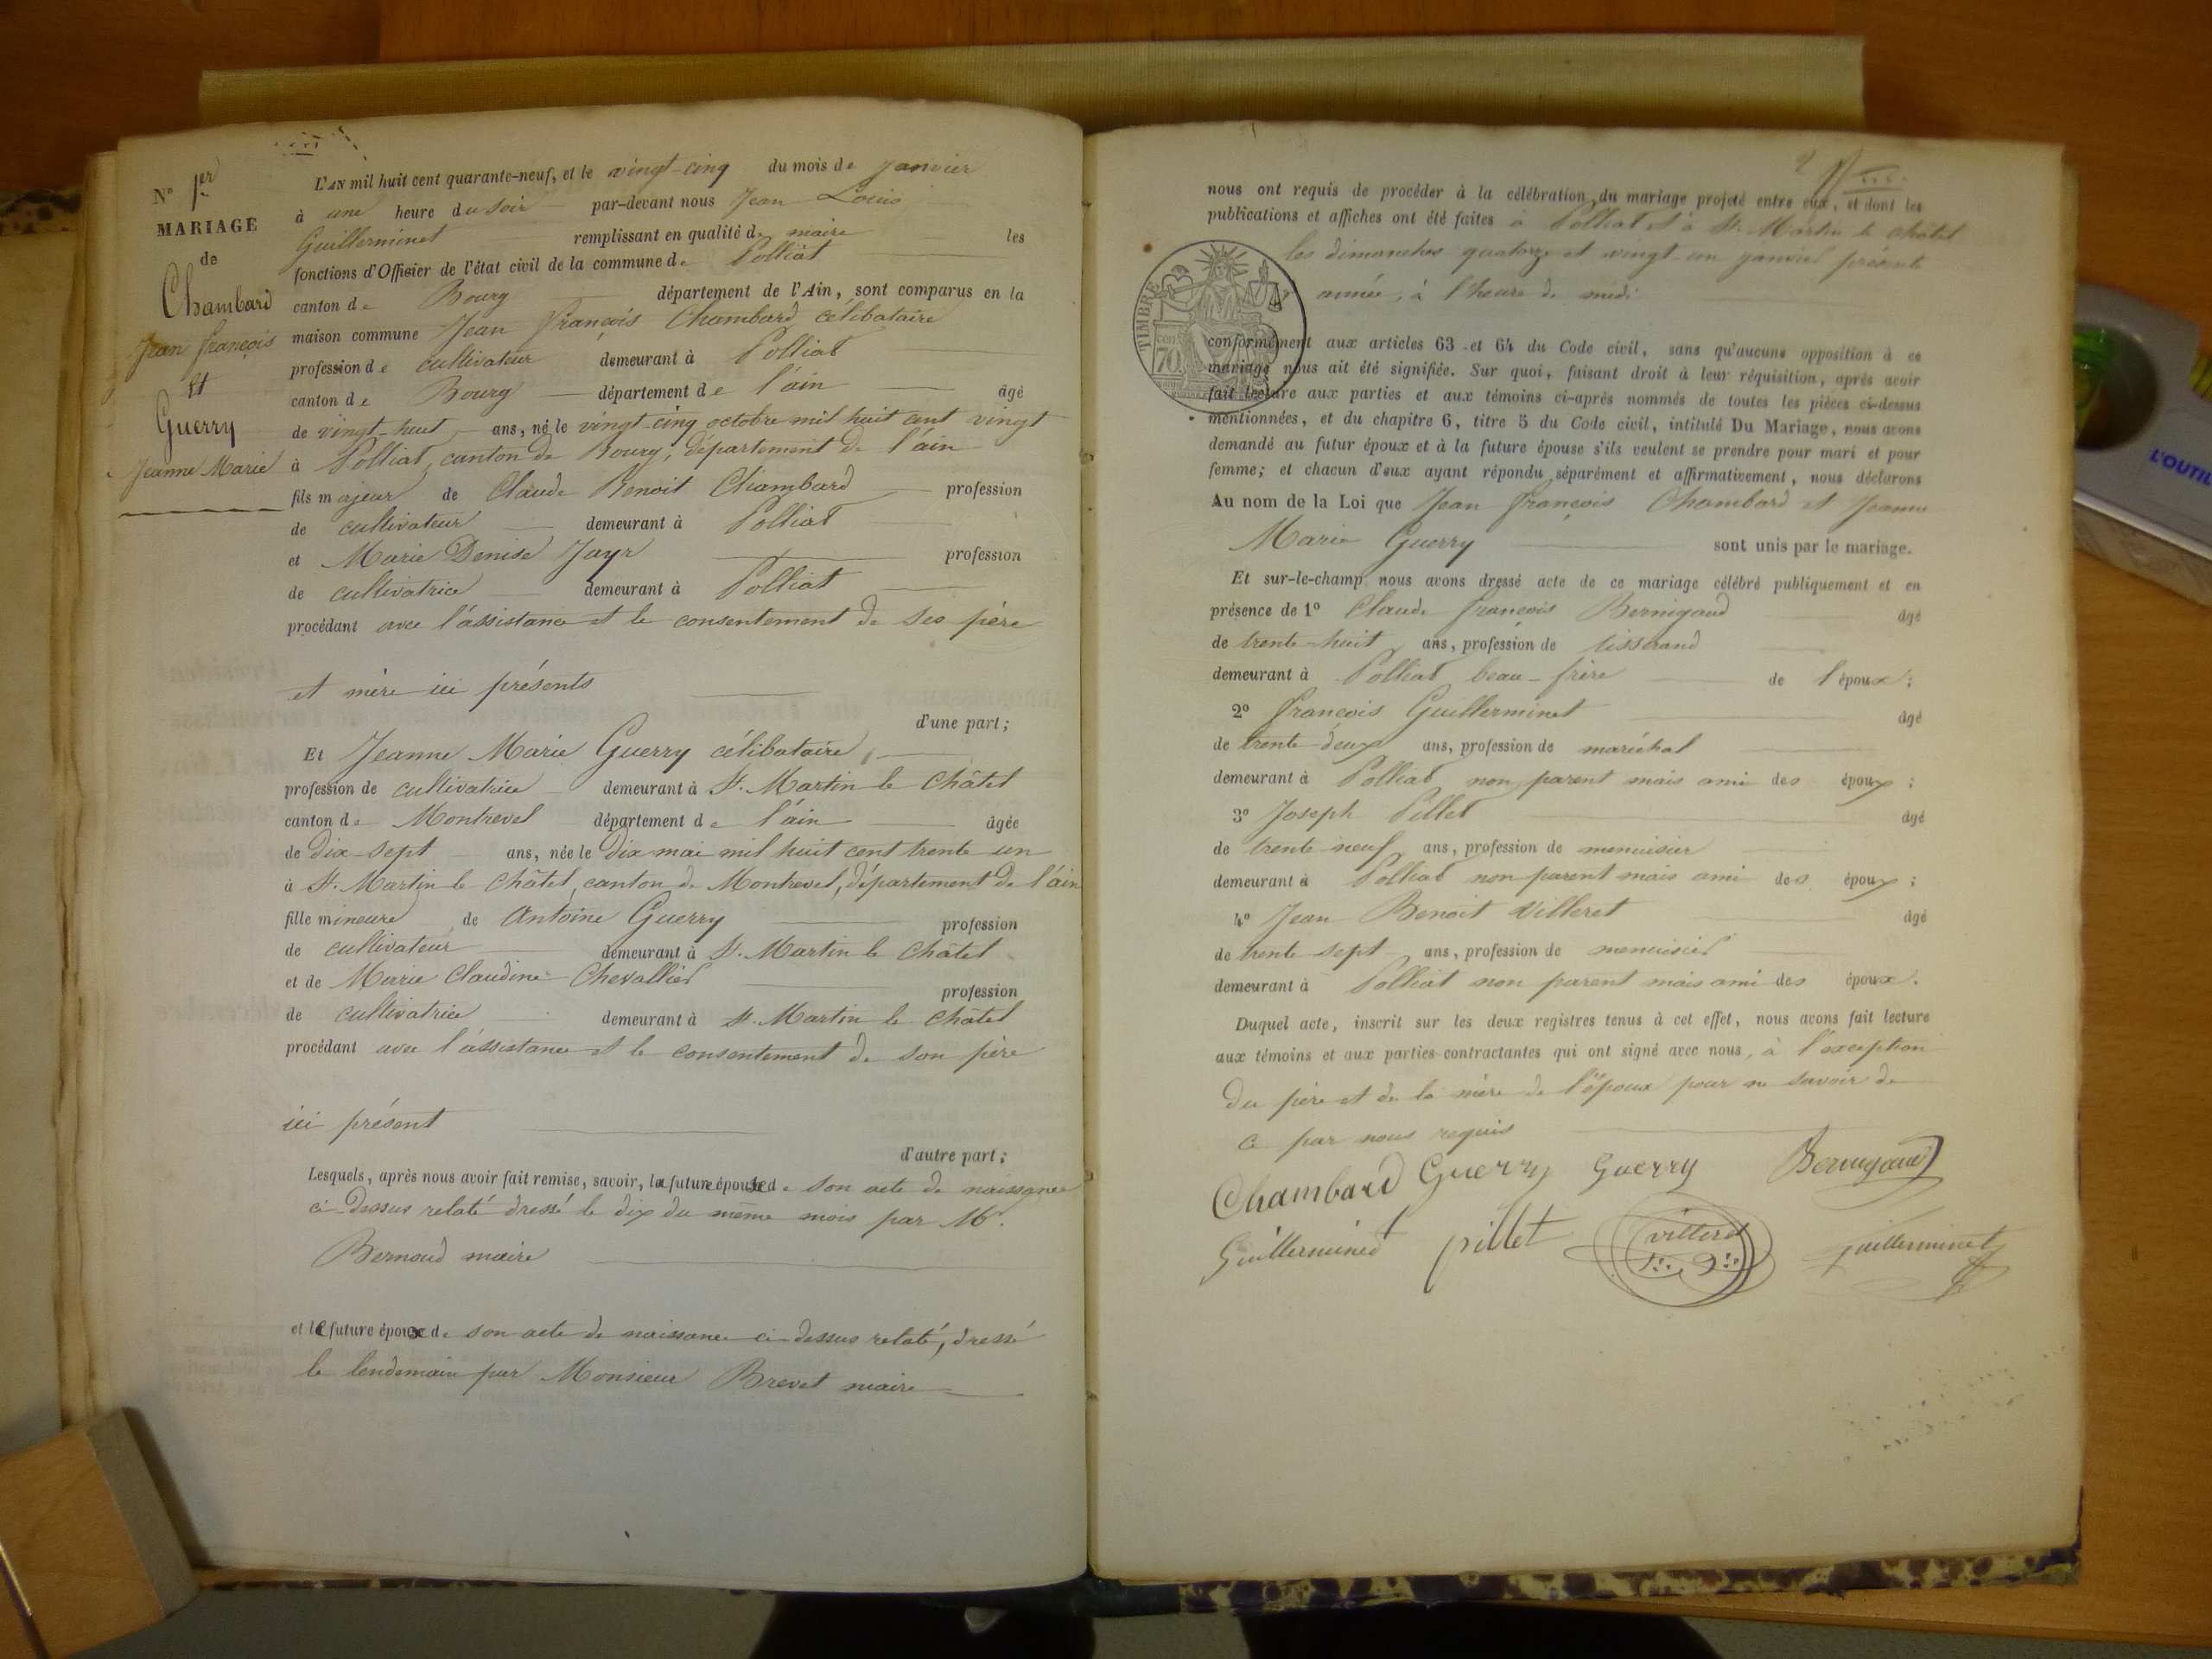 N° 1er
MARIAGE
de
Chambard
Jean françois
Et
Guerry
Jeanne Marie
L'AN mil huit cent quarante-neuf, et le vingt-cinq du mois de janvier
à une heure du soir par-devant nous Jean Louis
Guillerminet remplissant en qualité de maire les
fonctions d'Officier de l'état civil de la commune de Polliat
canton de Bourg département de l'Ain, sont comparus en la
maison commune Jean françois Chambard célibataire
profession de cultivateur demeurant à Polliat
canton de Bourg département de l'ain âgé
de vingt-huit ans, né le vingt-cinq octobre mil huit cent vingt
à Polliat, canton de Bourg, département de l'ain
fils majeur de Claude Benoit Chambard profession
de cultivateur demeurant à Polliat
et Marie Denise Jayr profession
de cultivatrice demeurant à Polliat
procédant avec l'assistance et le consentement de ses père
et mère ici présents
d'une part;
Et Jeanne Marie Guerry célibataire,
profession de cultivatrice demeurant à St. Martin le Châtel
canton de Montrevel département de l'ain âgée
de dix-sept ans, née le dix mai mil huit cent trente un
à St. Martin le Châtel, canton de Montrevel, département de l'ain
fille mineure de Antoine Guerry profession
de cultivateur demeurant à St. Martin le Châtel
et de Marie Claudine Chevallier profession
de cultivatrice demeurant à St. Martin le Châtel
procédant avec l'assistance et le consentement de son père
ici présent
d'autre part;
Lesquels, après nous avoir fait remise, savoir, la future épouse de son acte de naissance
ci-dessus relaté dressé le dix du même mois par Mr.
Bernoud maire
et le future époux de son acte de naissance ci-dessus relaté, dressé
le lendemain par Monsieur Brevet maire
2
nous ont requis de procéder à la célébration du mariage projeté entre eux, et dont les
publications et affiches ont été faites à Polliat et à St. Martin le Châtel
les dimanches quatorze et vingt-un janvier présente
année, à l'heure de midi
TIMBRE
70
conformément aux articles 63 et 64 du Code civil, sans qu'aucune opposition à ce
mariage nous ait été signifiée. Sur quoi, faisant droit à leur réquisition, après avoir
fait lecture aux parties et aux témoins ci-après nommés de toutes les pièces ci-dessus
mentionnées, et du chapitre 6, titre 5 du Code civil, intitulé Du Mariage, nous avons
demandé au futur époux et à la future épouse s'ils veulent se prendre pour mari et pour
femme; et chacun d'eux ayant répondu séparément et affirmativement, nous déclarons
Au nom de la Loi que Jean françois Chambard et Jeanne
Marie Guerry sont unis par le mariage.
Et sur-le-champ nous avons dressé acte de ce mariage célébré publiquement et en
présence de 1° Claude françois Bernigaud âgé
de trente-huit ans, profession de tisserand
demeurant à Polliat beau-frère de l'époux;
2° françois Guillerminet âgé
de trente-deux ans, profession de maréchal
demeurant à Polliat non parent mais ami des époux;
3° Joseph Pillet âgé
de trente neuf ans, profession de menuisier
demeurant à Polliat non parent mais ami des époux;
4° Jean Benoit Villeret âgé
de trente sept ans, profession de menuisier
demeurant à Polliat non parent mais ami des époux.
Duquel acte, inscrit sur les deux registres tenus à cet effet, nous avons fait lecture
aux témoins et aux parties contractantes qui ont signé avec nous, à l'exception
du père et de la mère de l'époux pour ne savoir de
ce par nous requis
Chambard Guerry Guerry Bernigaud
Guillerminet pillet villeret guillerminet
L'OUTIL